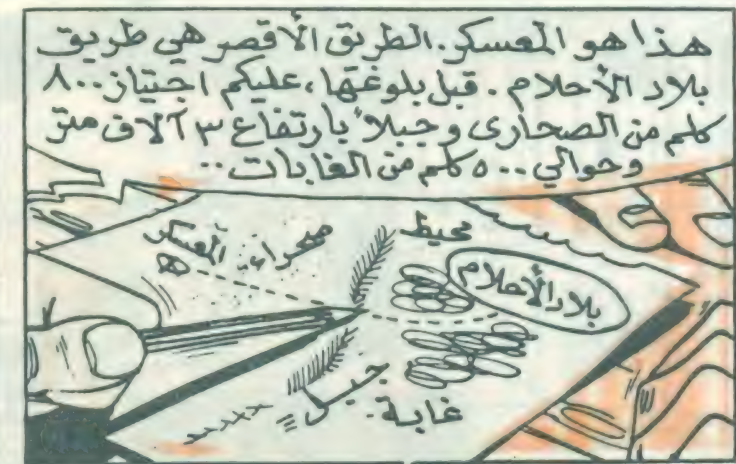 هذا هو المعسكر. الطريق الأقصر هي طريق
بلاد الأحلام. قبل بلوغها، عليكم اجتياز ٨٠٠
كلم من الصحارى وجبلاً بارتفاع ٣ آلاف متر
وحوالي ٥٠٠ كلم من الغابات..
محيط
صحراء المعسكر
بلاد الأحلام
جبل
غابة